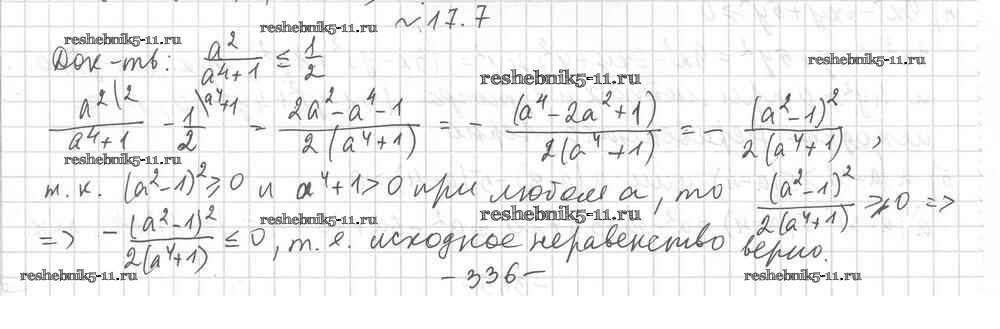 №17.7
reshebnik5-11.ru reshebnik5-11.ru
Док-ть: a²/(a⁴+1) ≤ 1/2
reshebnik5-11.ru reshebnik5-11.ru
a²\2/(a⁴+1) - 1\a⁴+1/2 = (2a²-a⁴-1)/(2(a⁴+1)) = - (a⁴-2a²+1)/(2(a⁴+1)) = - (a²-1)²/(2(a⁴+1)),
reshebnik5-11.ru
т.к. (a²-1)² ≥ 0 и a⁴+1>0 при любом a, то (a²-1)²/(2(a⁴+1)) ≥ 0 =>
reshebnik5-11.ru reshebnik5-11.ru reshebnik5-11.ru
=> - (a²-1)²/(2(a⁴+1)) ≤ 0, т.е. исходное неравенство верно.
reshebnik5-11.ru reshebnik5-11.ru
-336-